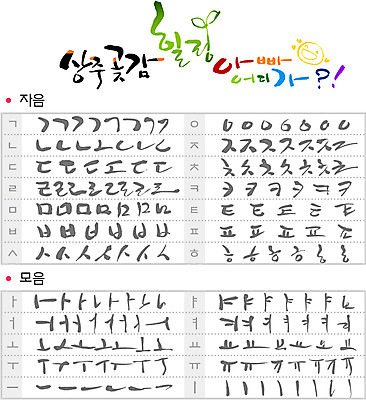 상주곶감 힐링 아빠 어디가?!
• 자음
ㄱ ㄱㄱㄱㄱㄱㄱㄱ ㅇ ㅇㅇㅇㅇㅇㅇㅇ
ㄴ ㄴㄴㄴㄴㄴㄴ ㅈ ㅈㅈㅈㅈㅈㅈ
ㄷ ㄷㄷㄷㄷㄷㄷ ㅊ ㅊㅊㅊㅊㅊㅊ
ㄹ ㄹㄹㄹㄹㄹㄹㄹ ㅋ ㅋㅋㅋㅋㅋ
ㅁ ㅁㅁㅁㅁㅁㅁ ㅌ ㅌㅌㅌㅌㅌ
ㅂ ㅂㅂㅂㅂㅂㅂ ㅍ ㅍㅍㅍㅍㅍ
ㅅ ㅅㅅㅅㅅㅅㅅ ㅎ ㅎㅎㅎㅎㅎ
• 모음
ㅏ ㅏㅏㅏㅏㅏㅏㅏ ㅑ ㅑㅑㅑㅑㅑㅑㅑ
ㅓ ㅓㅓㅓㅓㅓㅓㅓ ㅕ ㅕㅕㅕㅕㅕㅕ
ㅗ ㅗㅗㅗㅗㅗㅗ ㅛ ㅛㅛㅛㅛㅛㅛ
ㅜ ㅜㅜㅜㅜㅜㅜ ㅠ ㅠㅠㅠㅠㅠㅠ
ㅡ ㅡㅡㅡㅡㅡㅡ ㅣ ㅣㅣㅣㅣㅣㅣㅣ